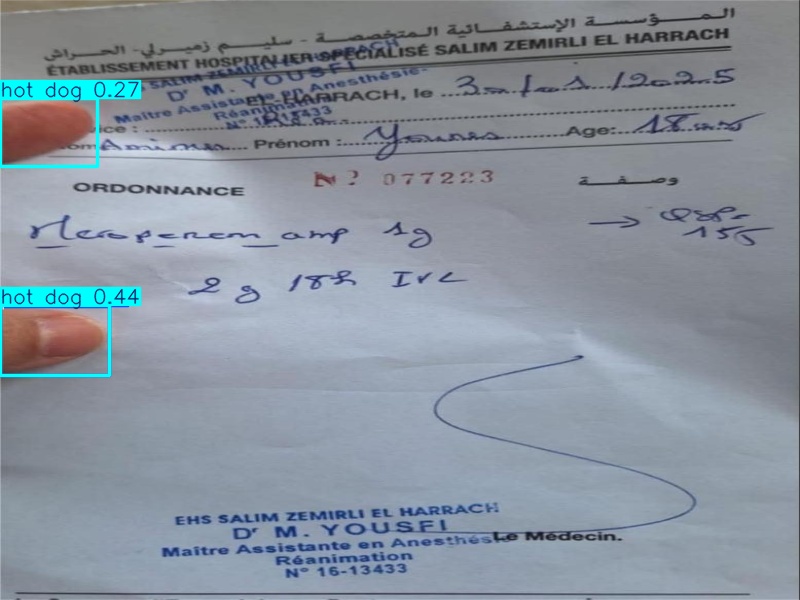 المؤسسة الإستشفائية المتخصصة - سليم زميرلي - الحراش
ÉTABLISSEMENT HOSPITALIER SPÉCIALISÉ SALIM ZEMIRLI EL HARRACH
SALIM ZEMIRLI EL HARRACH
Dr M. YOUSFI
Maître Assistante en Anesthésie-
Réanimation
N° 16-13433
EL HARRACH, le 30/01/2025
hot dog 0.27
Prénom : Younes Age: 18 ans
ORDONNANCE N° 077223 وصفة
Meropenem amp 1g → QSP
15J
2g 18h IVL
hot dog 0.44
EHS SALIM ZEMIRLI EL HARRACH
Dr M. YOUSFI
Maître Assistante en Anesthésie
Le Médecin.
Réanimation
N° 16-13433